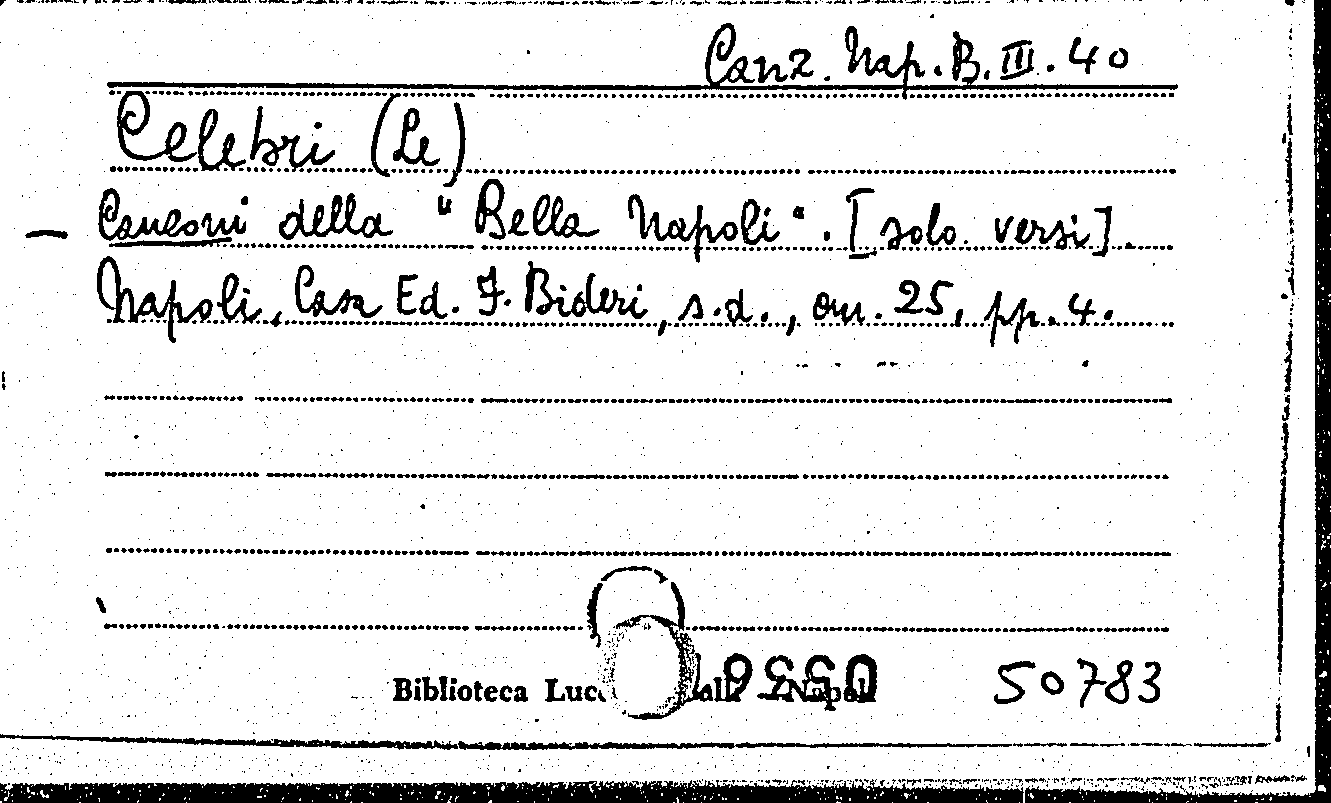 Canz. Nap. B. III. 40
Celebri (Le)
— Canzoni della "Bella Napoli". [solo versi].
Napoli, Casa Ed. F. Bideri, s.d., cm. 25, pp. 4.
Biblioteca Napoli 50783